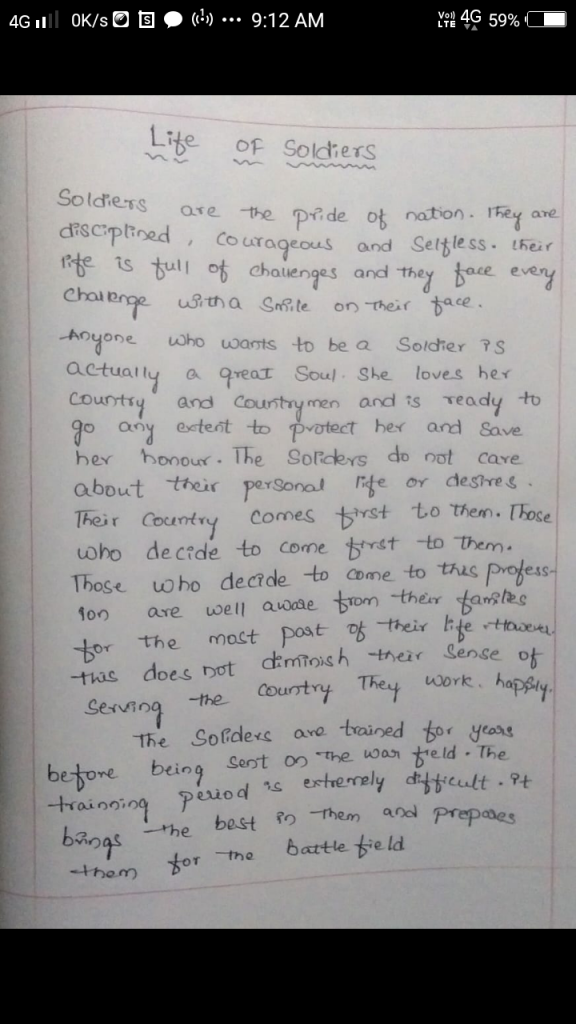 4G 0K/s S ... 9:12 AM Vo) LTE 4G 59%
Life OF Soldiers
Soldiers are the pride of nation. They are
disciplined, courageous and Selfless. their
life is full of challenges and they face every
Challenge with a Smile on their face.
Anyone who wants to be a Soldier is
actually a great Soul. She loves her
Country and Countrymen and is ready to
go any extent to protect her and Save
her honour. The Soliders do not care
about their personal life or desires.
Their Country comes first to them. Those
who decide to come first to them.
Those who decide to come to this profess-
ion are well aware from their families
for the most part of their life. However
this does not diminish their Sense of
Serving the country They work. happily.
The Soliders are trained for years
before being sent on the war field. The
trainning period is extremely difficult. it
brings the best in them and prepares
them for the battle field